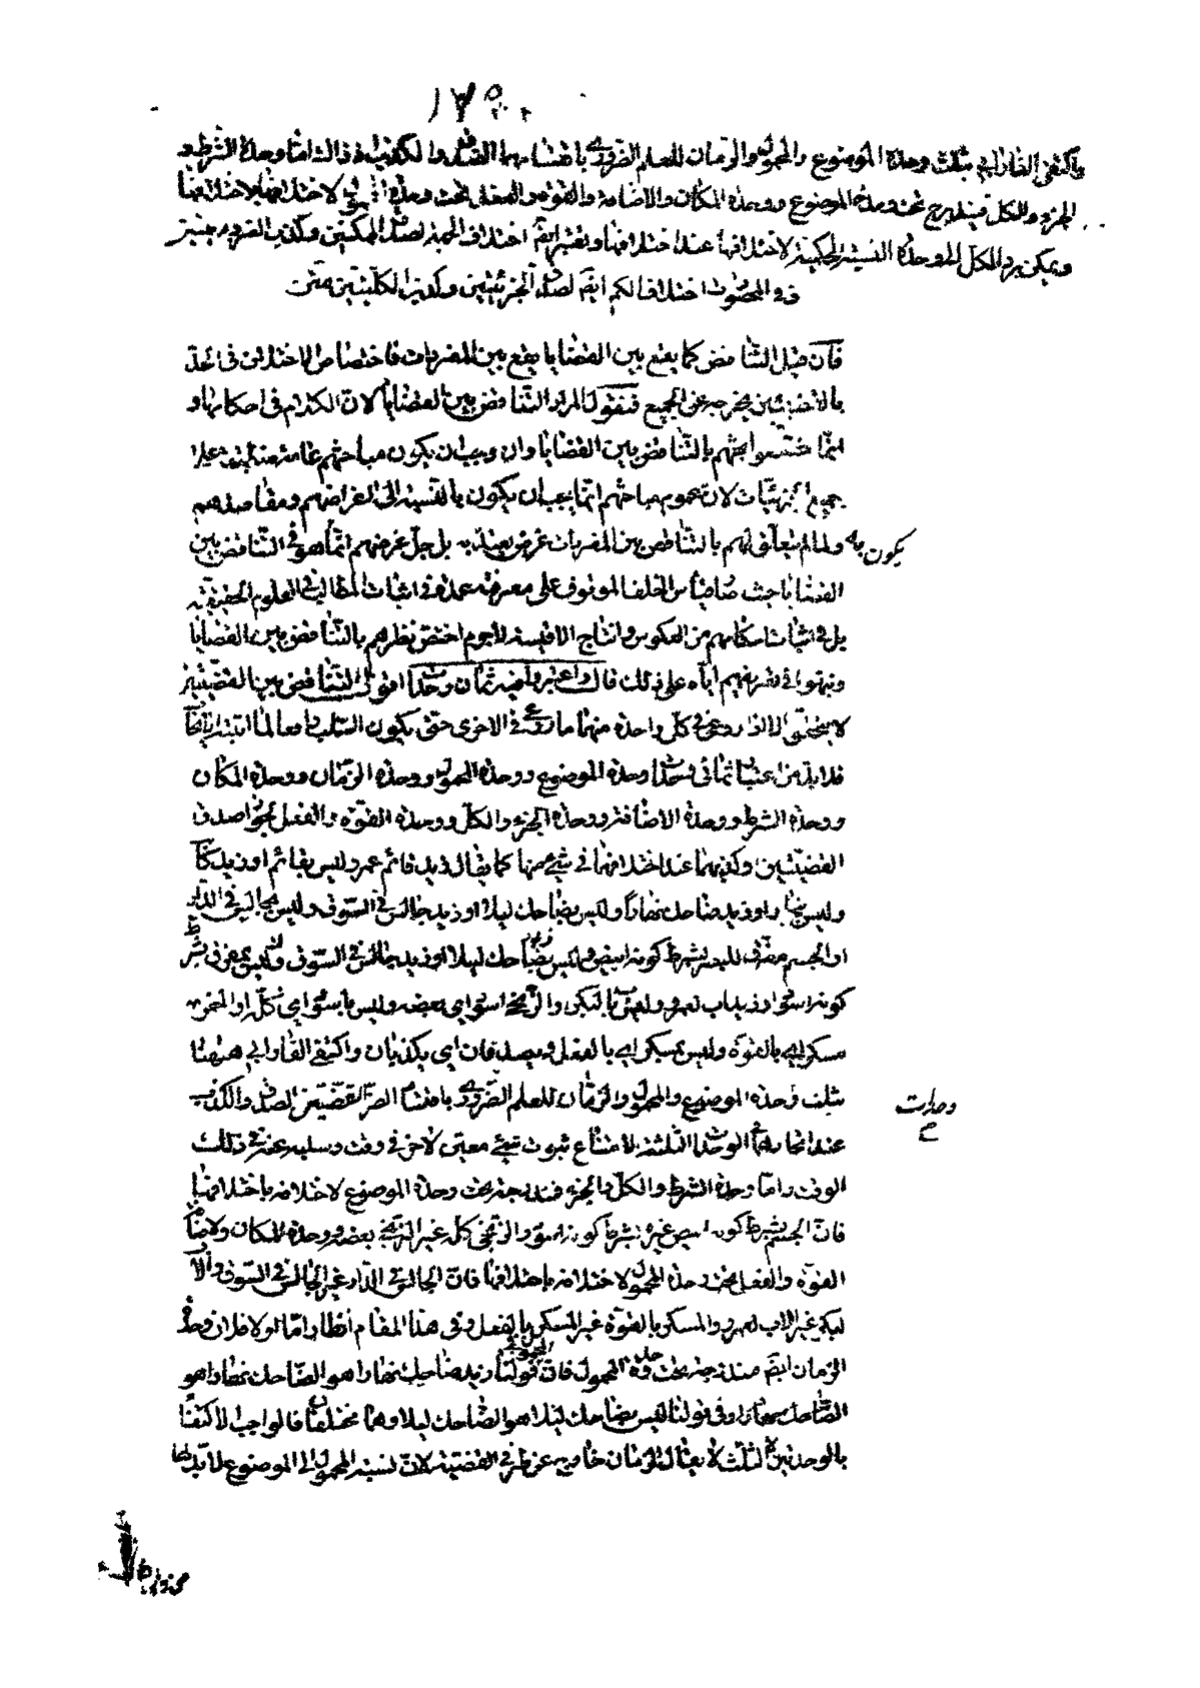 ١٧٥
واكتفى الفارابي بثلث وحدة الموضوع والمحمول والزمان للعلم الضروري بامتناعهما الصدق والكذب اذ ذاك اما وحدة الشرط و
الجزء والكل فيندرج تحت وحدة الموضوع ووحدة المكان والاضافة والقوة والفعل تحت وحدة لاختلافها لاختلافهما
ويمكن رد الكل الى وحدة النسبة الحكمية لاختلافها عند اختلافها ويعتبر ايضا اختلاف الجهة لصدق الممكنتين وكذب الضروريتين
وفي المحصورات اختلاف الكم ايضا لصدق الجزئيتين وكذب الكليتين متن
فان قيل التناقض كما يقع بين القضايا يقع بين المفردات فاختصاص الاختلاف في الحد
بالقضيتين يخرجه عن الجمع فنقول المراد التناقض بين القضايا لان الكلام في احكامها و
انما خصصوا بحثهم بالتناقض بين القضايا وان وجب ان يكون مباحثهم عامة منطبقة على
جميع الجزئيات لان عموم مباحثهم انما يجب ان يكون بالنسبة الى اغراضهم ومقاصدهم
ولما لم يتعلق لهم بالتناقض بين المفردات غرض يعتد به بل جل غرضهم انما هو في التناقض بين
يكون به
القضايا حيث صار قياس الخلف الموقوف على معرفته عمدة في اثبات المطالب في العلوم الحقيقية
بل في اثبات احكامهم من العكوس وانتاج الاقيسة لاجرم اختص نظرهم بالتناقض بين القضايا
ونبهوا في تعريفهم اياه على ذلك قال واعتبروا فيه ثمان وحدات اقول التناقض بين القضيتين
لا يتحقق الا اذا روعي في كل واحدة منهما ما روعي في الاخرى حتى يكون السلب رافعا لما اثبته الايجاب
فلا بد من اعتبار ثماني وحدات وحدة الموضوع ووحدة المحمول ووحدة الزمان ووحدة المكان
ووحدة الشرط ووحدة الاضافة ووحدة الجزء والكل ووحدة القوة والفعل لجواز صدق
القضيتين وكذبهما عند اختلافهما في شيء منها كما يقال زيد قائم عمرو ليس بقائم او زيد كاتب
وليس بنجار او زيد ضاحك نهارا وليس بضاحك ليلا او زيد جالس في السوق وليس بجالس في الدار
او الجسم مفرق للبصر بشرط كونه ابيض وليس بمفرق بشرط
كونه اسود او زيد اب لعمرو وليس باب لبكر والزنجي اسود اي بعضه وليس باسود اي كله او الخمر
مسكر اي بالقوة وليس بمسكر اي بالفعل واكتفى الفارابي ههنا
بثلث وحدة الموضوع والمحمول والزمان للعلم الضروري بامتناع القضيتين الصدق والكذب
وحدات
صح
عند اتحاد الوحدات الثلثة لامتناع ثبوت شيء معين لاخر في وقت وسلبه عنه في ذلك
الوقت واما وحدة الشرط والكل والجزء فمندرجة تحت وحدة الموضوع لاختلافه باختلافها
فان الجسم بشرط كونه ابيض غيره بشرط كونه اسود والزنجي كله غير الزنجي بعضه ووحدة المكان والاضافة
القوة والفعل تحت وحدة المحمول لاختلافه باختلافها فان الجالس في الدار غير الجالس في السوق والاب
لبكر غير الاب لعمرو والمسكر بالقوة غير المسكر بالفعل وفي هذا المقام انظار اما اولا فلان وحدة
الزمان ايضا مندرجة تحت وحدة المحمول فان المحمول في قولنا زيد ضاحك نهارا هو الضاحك نهارا هو
الضاحك نهارا وفي قولنا ليس بضاحك ليلا هو الضاحك ليلا وهما مختلفان فالواجب الاكتفاء
بالوحدتين لا الثلث لا يقال الزمان خارج عن طرفي القضية لان نسبة المحمول الى الموضوع لا بد لها